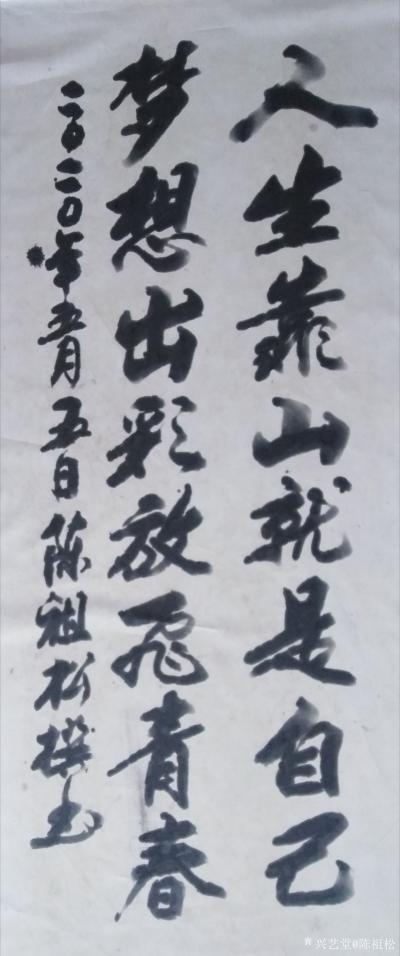 人生靠山就是自己
梦想出彩放飞青春
二〇二〇年五月五日陈祖松撰书
兴艺堂@陈祖松